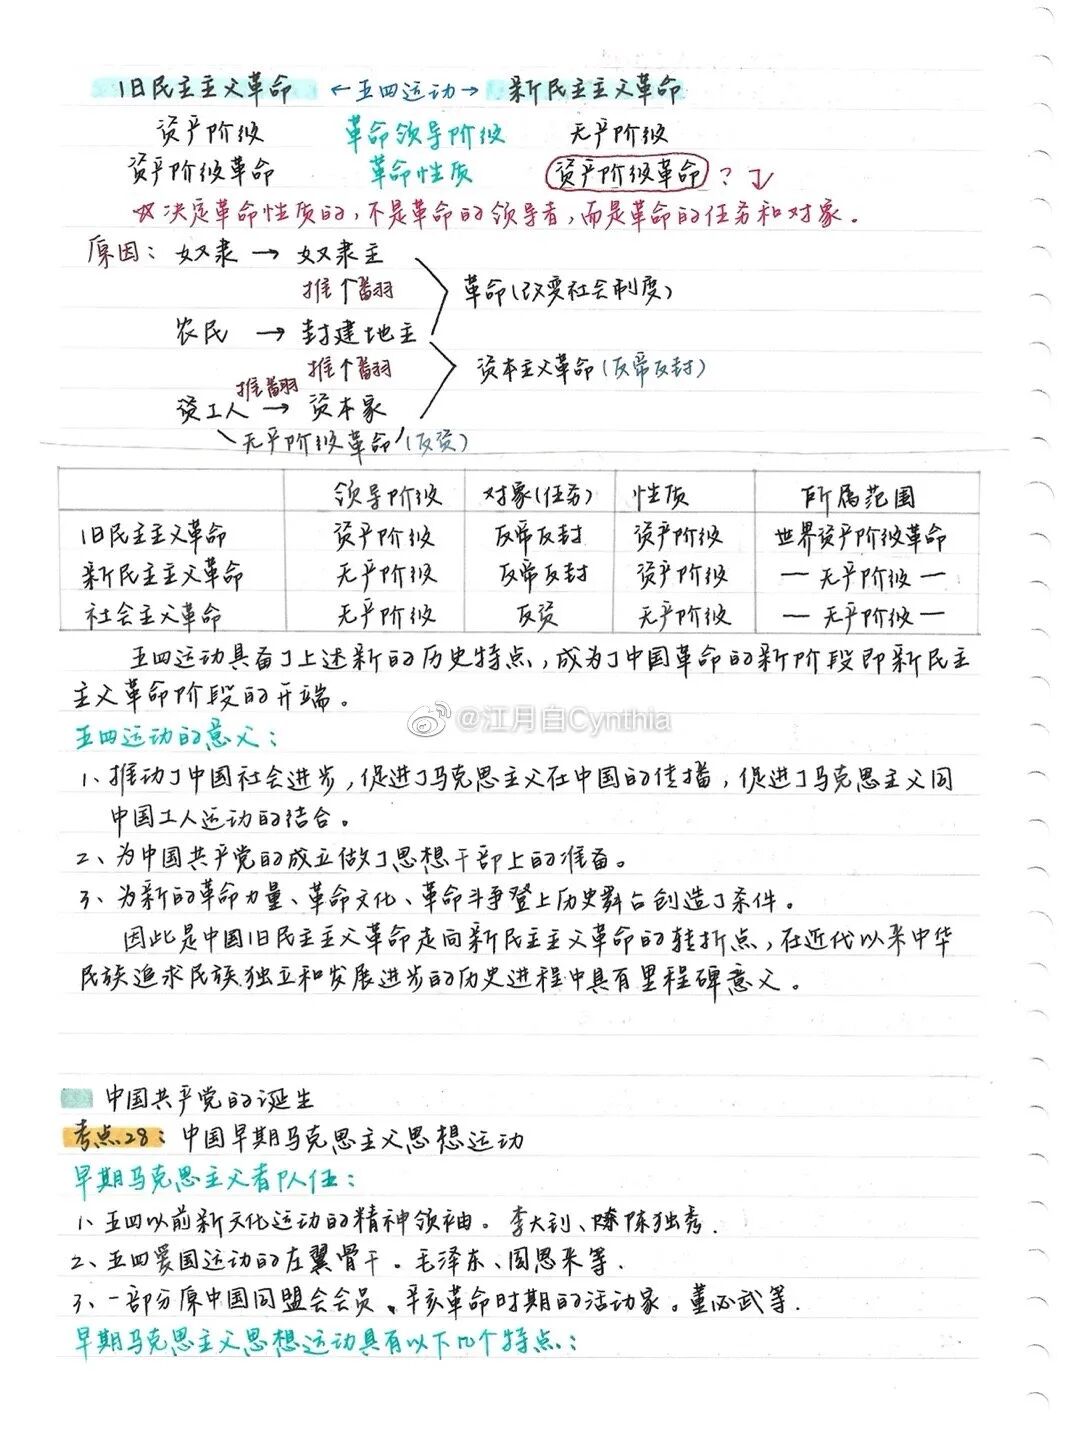 旧民主主义革命 ←五四运动→ 新民主主义革命
资产阶级 革命领导阶级 无产阶级
资产阶级革命 革命性质 资产阶级革命 ?
☆决定革命性质的,不是革命的领导者,而是革命的任务和对象。
原因: 奴隶 → 奴隶主
推翻 革命(改变社会制度)
农民 → 封建地主
推翻 资本主义革命(反帝反封)
推翻
资工人 → 资本家
无产阶级革命(反资)
领导阶级 对象(任务) 性质 所属范围
旧民主主义革命 资产阶级 反帝反封 资产阶级 世界资产阶级革命
新民主主义革命 无产阶级 反帝反封 资产阶级 — 无产阶级 —
社会主义革命 无产阶级 反资 无产阶级 — 无产阶级 —
五四运动具备了上述新的历史特点,成为了中国革命的新阶段即新民主
主义革命阶段的开端。
@江月白Cynthia
五四运动的意义:
1、推动了中国社会进步,促进了马克思主义在中国的传播,促进了马克思主义同
中国工人运动的结合。
2、为中国共产党的成立做了思想干部上的准备。
3、为新的革命力量、革命文化、革命斗争登上历史舞台创造了条件。
因此是中国旧民主主义革命走向新民主主义革命的转折点,在近代以来中华
民族追求民族独立和发展进步的历史进程中具有里程碑意义。
中国共产党的诞生
考点28: 中国早期马克思主义思想运动
早期马克思主义者队伍:
1、五四以前新文化运动的精神领袖。李大钊、陈独秀.
2、五四爱国运动的左翼骨干。毛泽东、周恩来等.
3、一部分原中国同盟会会员、辛亥革命时期的活动家。董必武等.
早期马克思主义思想运动具有以下几个特点: